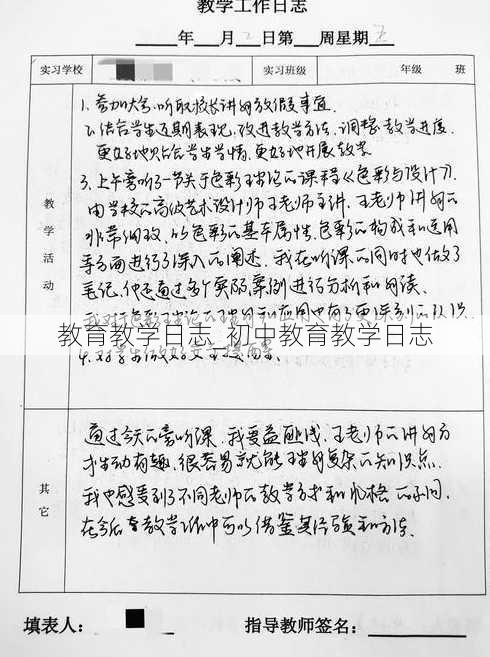 教学工作日志
年 月 日第 周星期五
实习学校 实习班级 年级 班
教学活动
1、参加大会,听取校长讲解放假事宜.
2、结合学生近期表现,改进教学方法,调整教学进度.
更好地贴合学生学情,更好地开展教学
3、上午旁听了一节关于色彩理论的课程《色彩与设计》.
由学校的高级艺术设计师王老师主讲,王老师讲解的
非常细致,从色彩的基本属性,色彩的构成和运用
等方面进行了深入的阐述,我在听课的同时也做了
笔记,他还通过多个实际案例进行分析和解读.
教育教学日志_初中教育教学日志
其它
通过今天的旁听课,我受益匪浅,王老师的讲解方
式生动有趣,很容易就能理解复杂的知识点.
我也感受到了不同老师的教学方式和风格的不同,
在今后的教学工作中可以借鉴其经验和方法.
填表人: 指导教师签名: